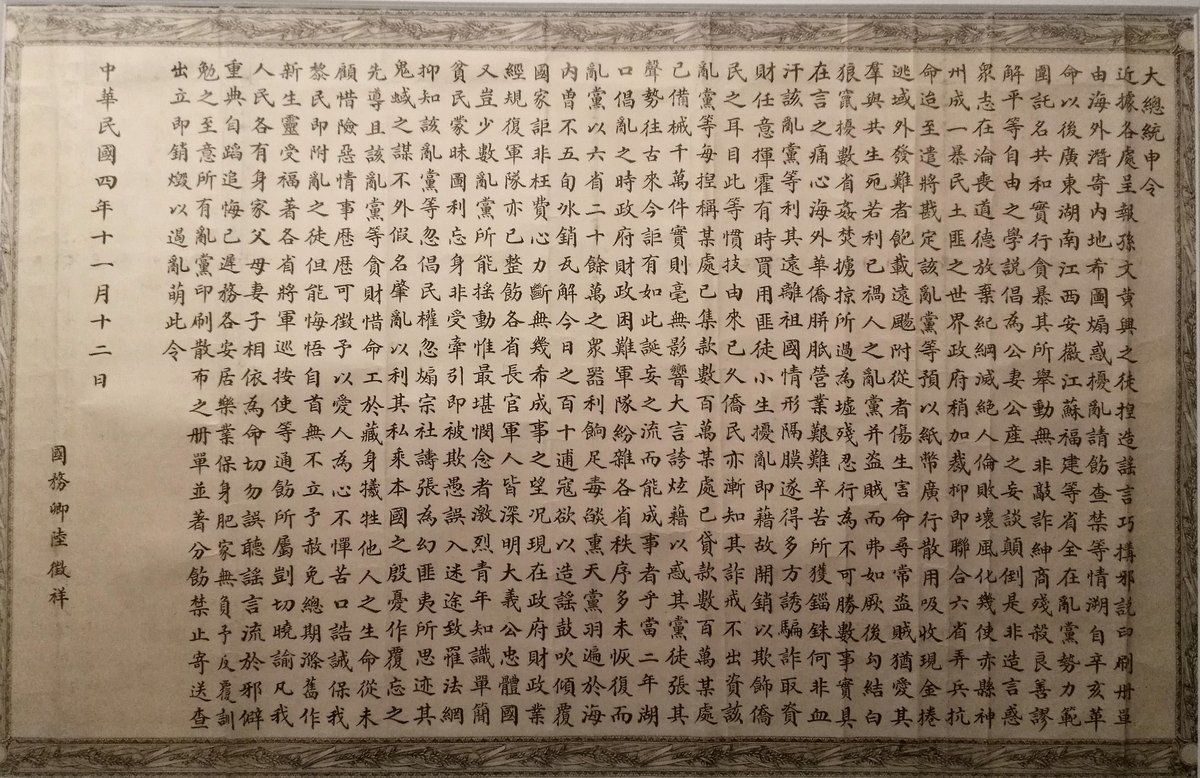 大總統申令
近據各處呈報孫文黄興之徒揑造謡言巧搆邪説印刷冊單
由海外潛寄内地希圖煽惑擾亂請飭查禁等情溯自辛亥革
命以後廣東湖南江西安徽江蘇福建等省全在亂黨勢力範
圍託名共和實行貪暴其所舉動無非敲詐紳商殘殺良善謬
解平等自由之學説倡為公妻公産之妄談顛倒是非造言惑
衆志在淪喪道德放棄紀綱滅絕人倫敗壞風化幾使赤縣神
州成一暴民土匪之世界政府稍加裁抑即聯合六省弄兵抗
命迨至遣將戡定該亂黨等預以紙幣廣行散用吸收現金捲
逃域外發難者飽載遠颺附從者傷生害命尋常盗賊猶愛其
羣與共生死若利已禍人之亂黨并盗賊而弗如厥後勾結白
狼竄擾數省姦焚擄掠所過為墟殘忍行為不可勝數事實具
在言之痛心海外華僑胼胝營業艱難辛苦所獲錙銖何非血
汗該亂黨等利其遠離祖國情形隔膜遂得多方誘騙詐取資
財任意揮霍有時買用匪徒小生擾亂即藉故開銷以欺飾僑
民之耳目此等慣技由來已久僑民亦漸知其詐戒不出資該
亂黨等每揑稱某處已集款數百萬某處已貸款數百萬某處
已備械千萬件實則毫無影響大言誇炫藉以惑其黨徒張其
聲勢往古來今詎有如此誕妄之流而能成事者乎當二年湖
口倡亂之時政府財政困難軍隊紛雜各省秩序多未恢復而
亂黨以六省二十餘萬之衆器利餉足毒燄熏天黨羽遍於海
内曾不五旬氷銷瓦解今日之百十逋寇欲以造謡鼓吹傾覆
國家詎非枉費心力斷無幾希成事之望况現在政府財政業
經規復軍隊亦已整飭各省長官軍人皆深明大義公忠體國
又豈少數亂黨所能揺動惟最堪憫念者激烈青年知識單簡
貧民蒙昧圖利忘身非受牽引即被欺愚誤入迷途致罹法網
抑知該亂黨等忽倡民權忽煽宗社譸張為幻匪夷所思迹其
鬼蜮之謀不外假名肇亂以利其私乘本國之殷憂作覆忘之
先導且該亂黨等貪財惜命工於藏身犠牲他人之生命從未
顧惜險惡情事歴歴可徵予以愛人為心不憚苦口誥誡保我
黎民即附亂之徒但能悔悟自首無不立予赦免總期滌舊作
新生靈受福著各省將軍巡按使等通飭所屬剴切曉諭凡我
人民各有身家父母妻子相依為命切勿誤聽謡言流於邪僻
重典自蹈追悔已遲務各安居樂業保身肥家無負予反覆訓
勉之至意所有亂黨印刷散布之册單並著分飭禁止寄送查
出立即銷燬以遏亂萌此令
中華民國四年十一月十二日
國務卿陸徵祥